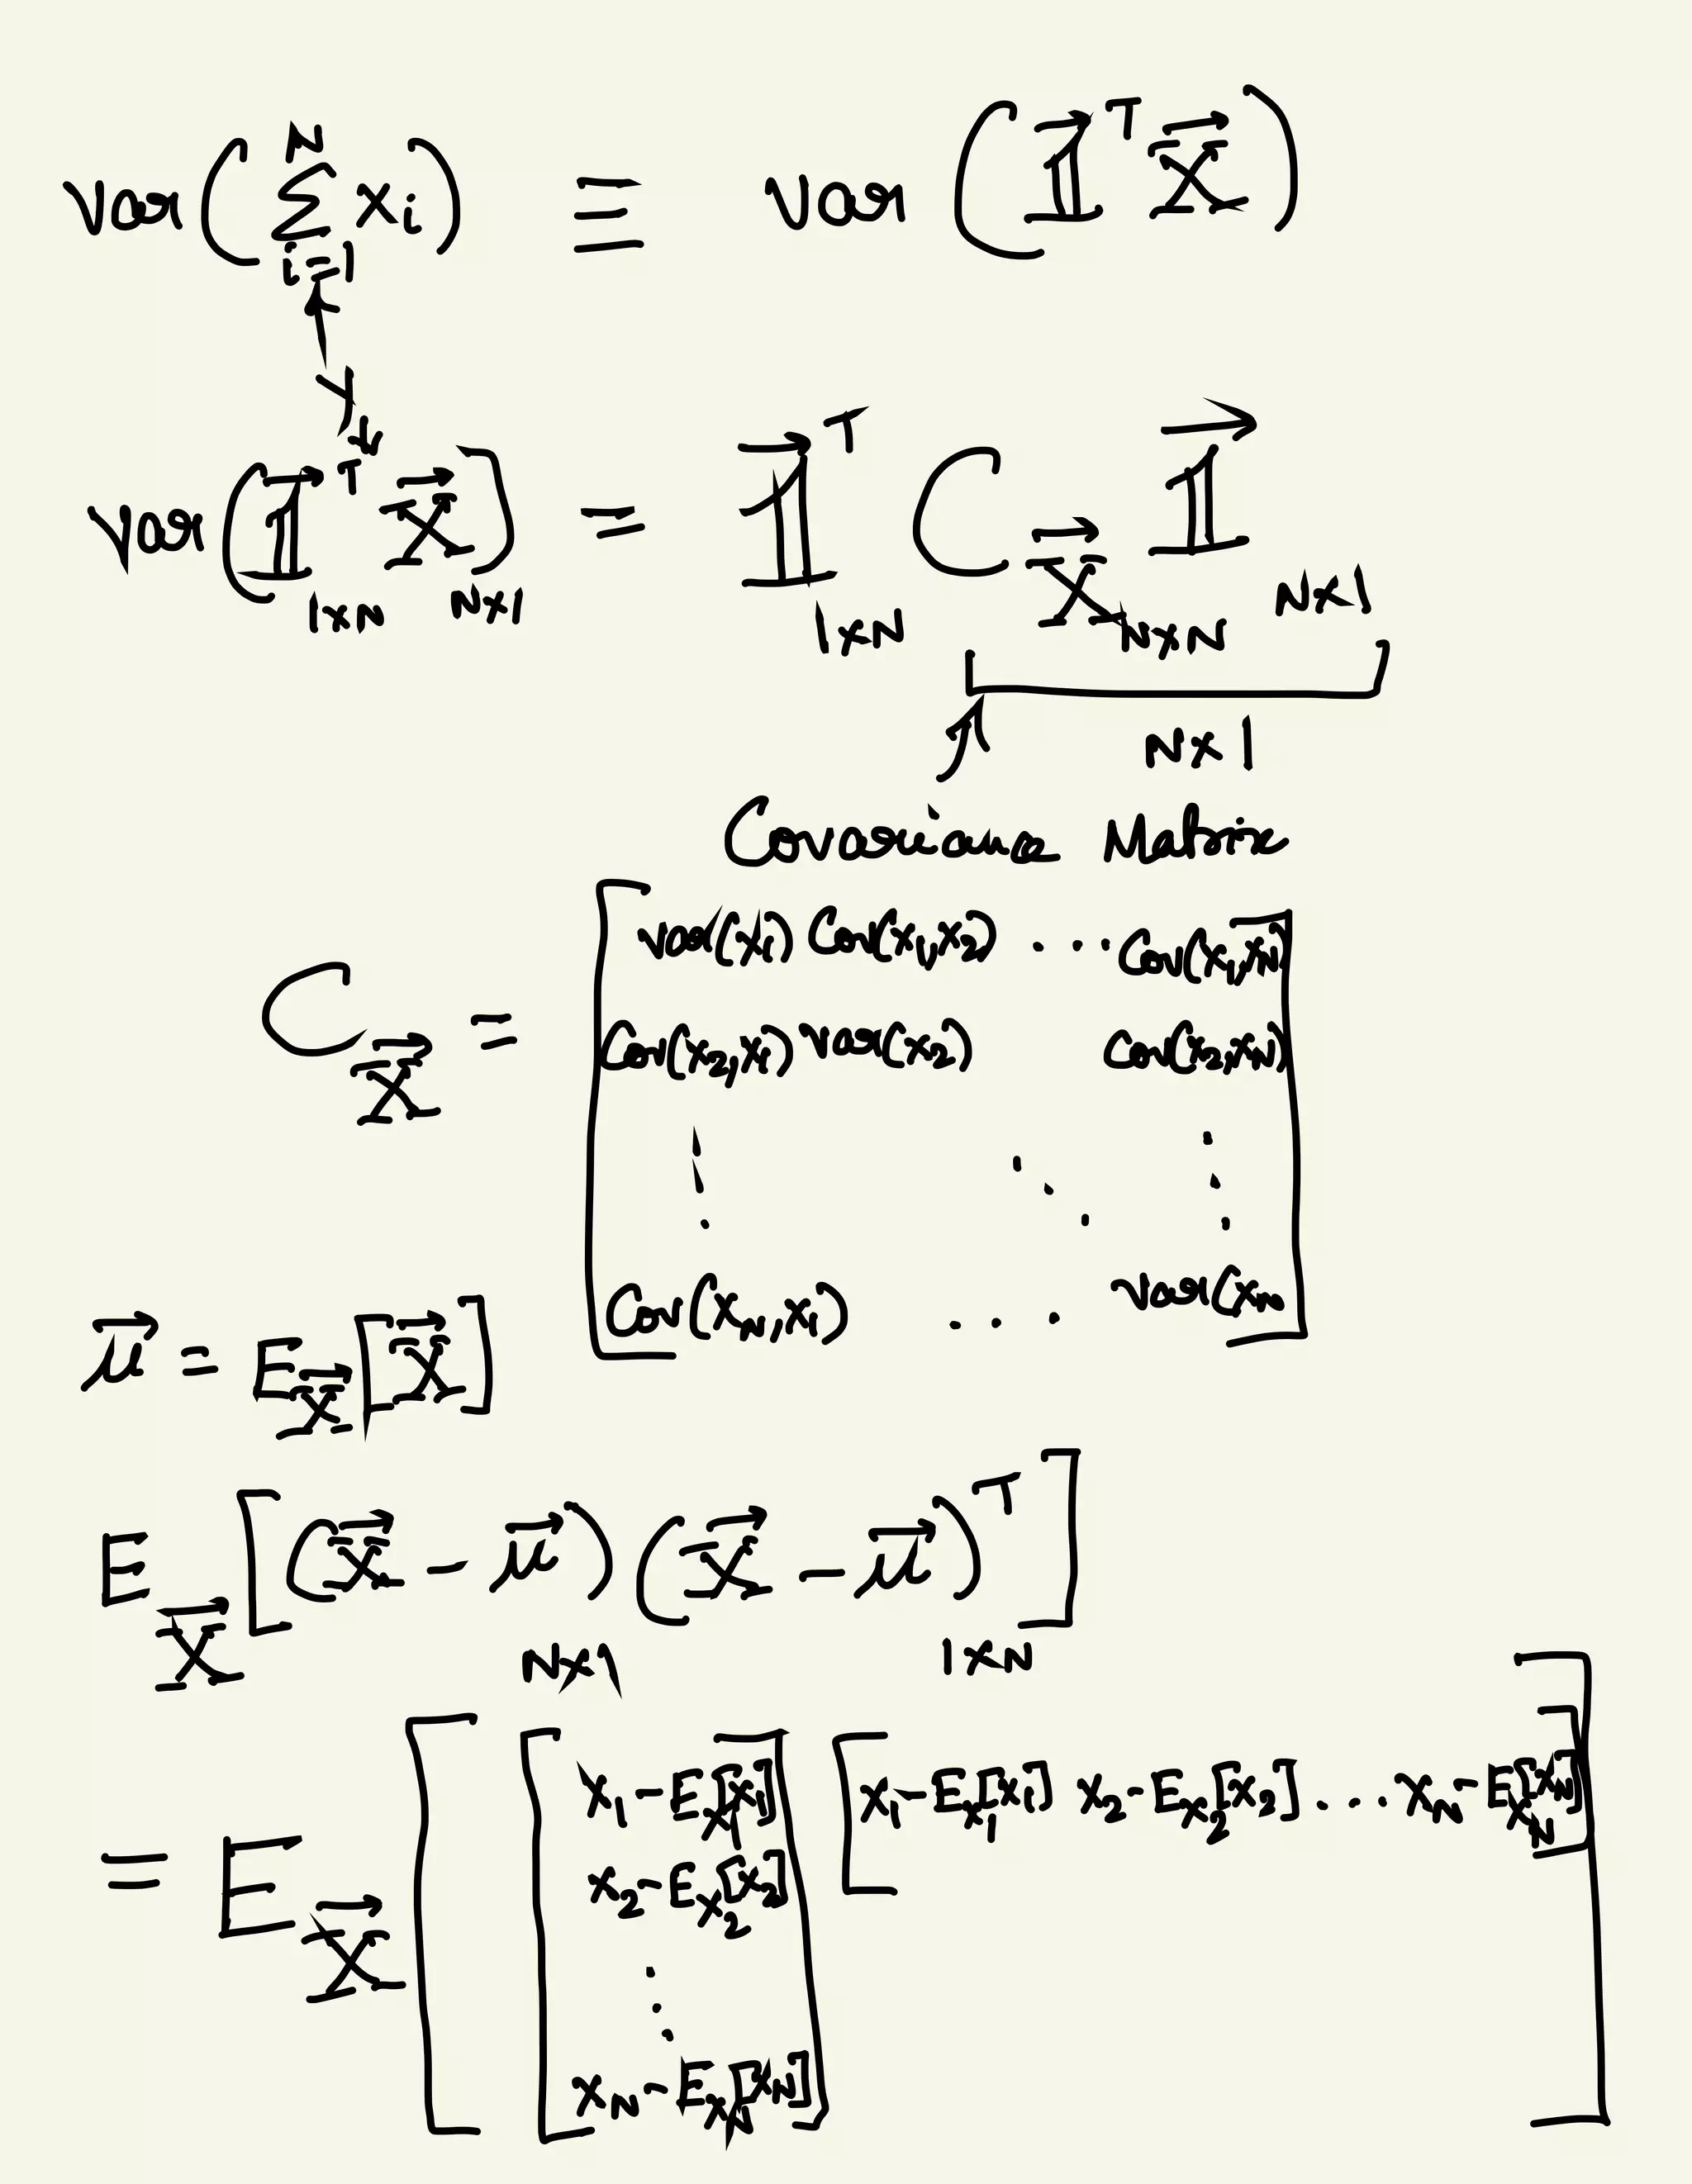 var(∑_{i=1}^{N} x_i) ≡ var(𝟙⃗^T X⃗)
Y
var(𝟙⃗^T_{1×N} X⃗_{N×1}) = 𝟙⃗^T_{1×N} C_{X⃗ N×N} 𝟙⃗_{N×1}
N×1
Covariance Matrix
C_{X⃗} = [ var(x_1) Cov(x_1,x_2) ... Cov(x_1,x_N)
Cov(x_2,x_1) var(x_2) Cov(x_2,x_N)
⋮ ⋱ ⋮
Cov(x_N,x_1) ... var(x_N ]
μ⃗ = E_{X⃗}[X⃗]
E_{X⃗}[(X⃗ - μ⃗)(X⃗ - μ⃗)^T]
N×1 1×N
= E_{X⃗} [ [ x_1 - E_{x_1}[x_1] [ x_1 - E_{x_1}[x_1] x_2 - E_{x_2}[x_2] ... x_N - E_{x_N}[x_N] ]
x_2 - E_{x_2}[x_2]
⋮
x_N - E_{x_N}[x_N] ] ]